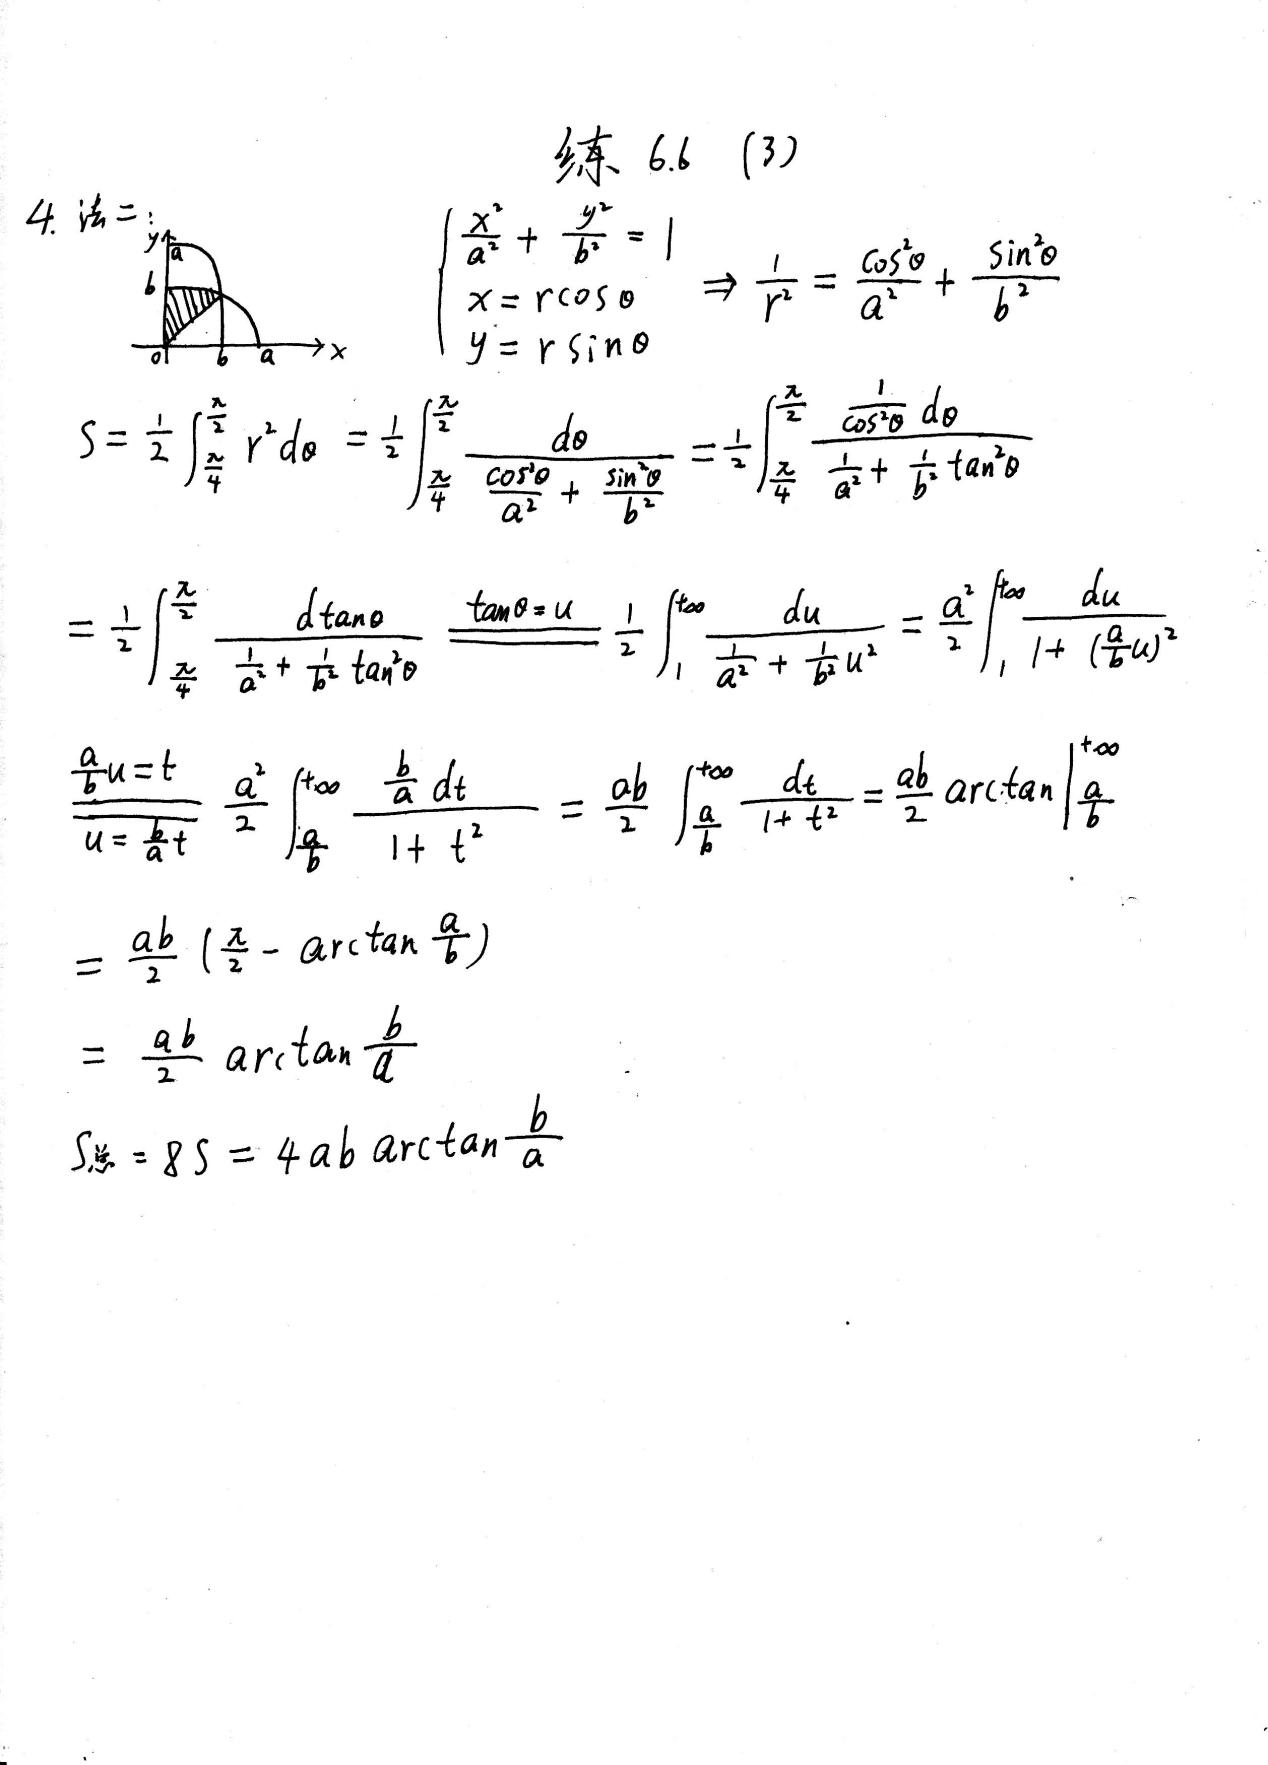 练 6.6 (3)
4. 法二:
y a b o b a x
{ x²/a² + y²/b² = 1
x = rcosθ ⇒ 1/r² = cos²θ/a² + sin²θ/b²
y = rsinθ
S = 1/2 ∫_{π/4}^{π/2} r²dθ = 1/2 ∫_{π/4}^{π/2} dθ/(cos²θ/a² + sin²θ/b²) = 1/2 ∫_{π/4}^{π/2} (1/cos²θ dθ)/(1/a² + 1/b² tan²θ)
= 1/2 ∫_{π/4}^{π/2} dtanθ/(1/a² + 1/b² tan²θ) tanθ=u 1/2 ∫_1^{+∞} du/(1/a² + 1/b² u²) = a²/2 ∫_1^{+∞} du/(1+(a/b u)²)
a/b u=t u=b/a t a²/2 ∫_{a/b}^{+∞} (b/a dt)/(1+t²) = ab/2 ∫_{a/b}^{+∞} dt/(1+t²) = ab/2 arctan |_{a/b}^{+∞}
= ab/2 (π/2 - arctan a/b)
= ab/2 arctan b/a
S总 = 8S = 4ab arctan b/a